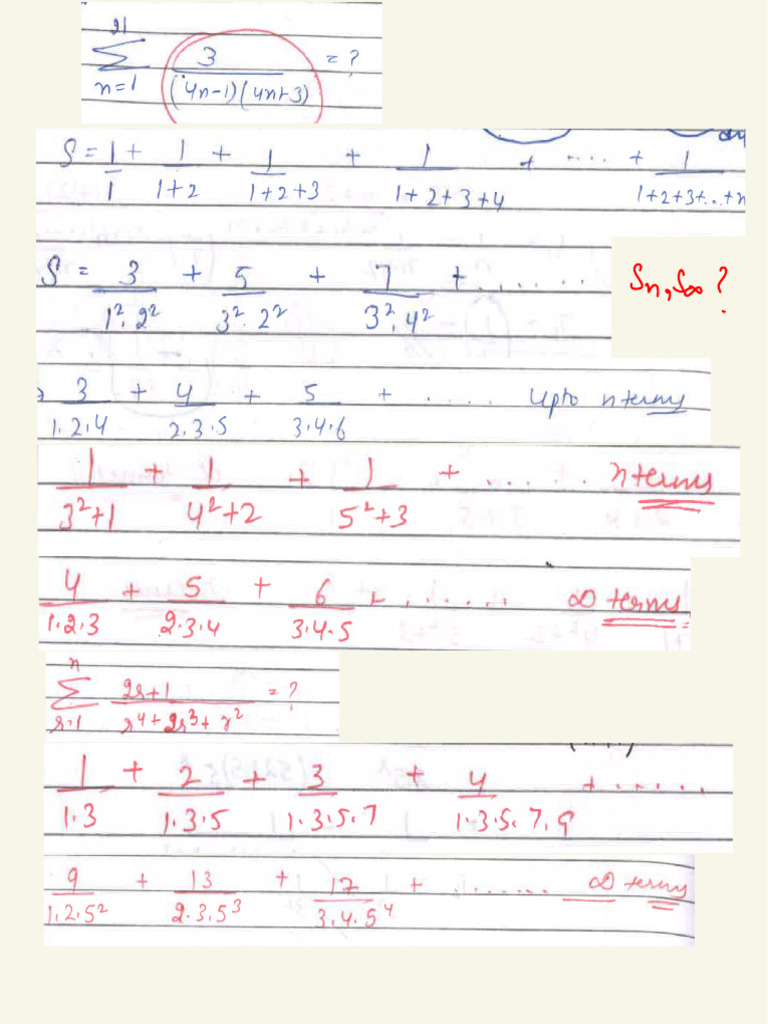 21
∑ 3/((4n-1)(4n+3)) = ?
n=1
S = 1/1 + 1/(1+2) + 1/(1+2+3) + 1/(1+2+3+4) + .... + 1/(1+2+3+...+n
S = 3/(1²·2²) + 5/(3²·2²) + 7/(3²·4²) + ....... Sn, S∞ ?
3/(1·2·4) + 4/(2·3·5) + 5/(3·4·6) + ..... upto n terms
1/(3²+1) + 1/(4²+2) + 1/(5²+3) + ...... n terms
4/(1·2·3) + 5/(2·3·4) + 6/(3·4·5) + ...... ∞ terms
n
∑ (2r+1)/(r⁴+2r³+r²) = ?
r=1
1/(1·3) + 2/(1·3·5) + 3/(1·3·5·7) + 4/(1·3·5·7·9) + ......
9/(1·2·5²) + 13/(2·3·5³) + 17/(3·4·5⁴) + ........ ∞ terms